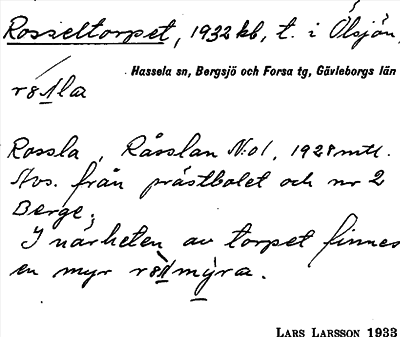 Rosseltorpet, 1932 kb, t. i Ölsjön,
Hassela sn, Bergsjö och Forsa tg, Gävleborgs län
r81la
Rossla, Råsslan N:o1, 1928 mtl.
Avs. från prästbolet och nr 2
Berge.
I närheten av torpet finnes
en myr r81myra.
LARS LARSSON 1933